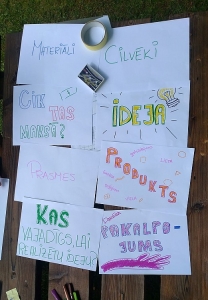 MATERIĀLI
CILVĒKI
CIK
TAS
MAKSĀ?
IDEJA
PRASMES
PRODUKTS
KAS
VAJADZĪGS, LAI
REALIZĒTU IDEJU?
PAKALPO-
JUMS